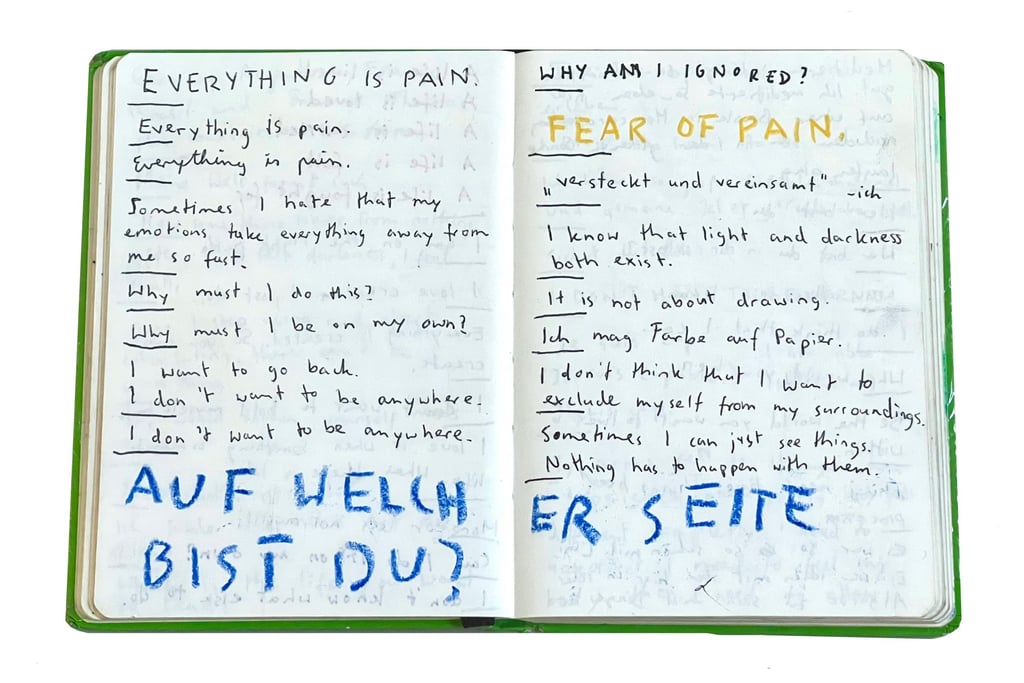 EVERYTHING IS PAIN.
Everything is pain.
Everything is pain.
Sometimes I hate that my
emotions take everything away from
me so fast.
Why must I do this?
Why must I be on my own?
I want to go back.
I don't want to be anywhere.
I don't want to be anywhere.
AUF WELCH
BIST DU?
WHY AM I IGNORED?
FEAR OF PAIN.
„versteckt und vereinsamt" -ich
I know that light and darkness
both exist.
It is not about drawing.
Ich mag Farbe auf Papier.
I don't think that I want to
exclude myself from my surroundings.
Sometimes I can just see things.
Nothing has to happen with them.
ER SEITE